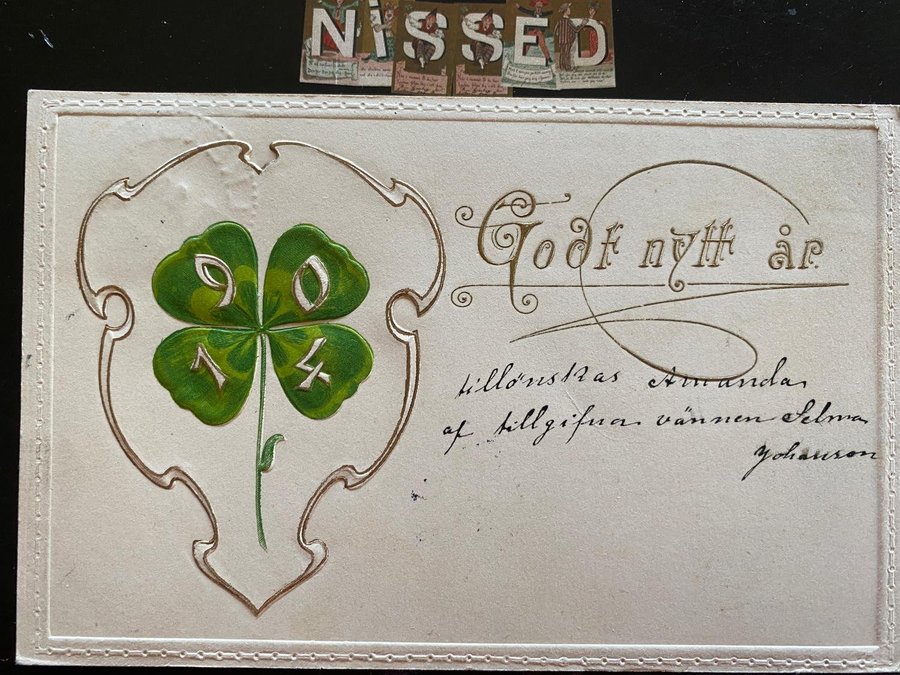 NiSSED
90
14
Godt nytt år.
tillönskas Amanda
af tillgifna vännen Selma
Johanson